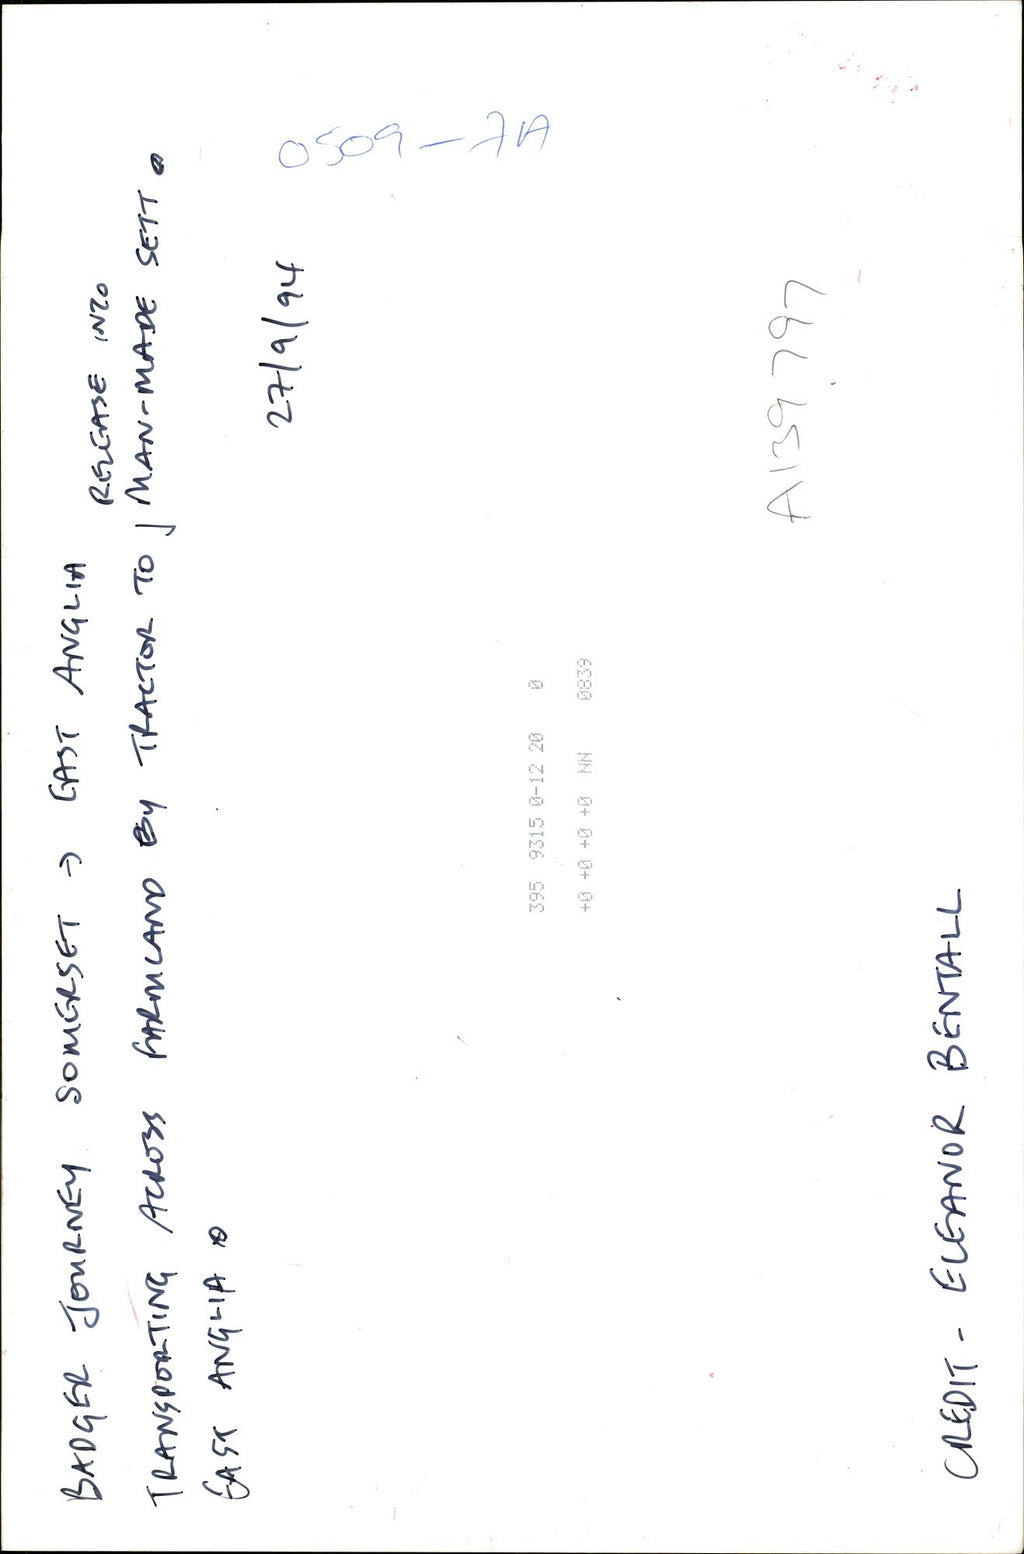 BADGER JOURNEY SOMERSET → EAST ANGLIA
RELEASE INTO
TRANSPORTING ACROSS FARMLAND BY TRACTOR TO MAN-MADE SETT.
EAST ANGLIA.
27/9/94
0509-7A
395 9315 0-12 20 0
+0 +0 +0 +0 NN 0839
A139797
CREDIT - ELEANOR BENTALL